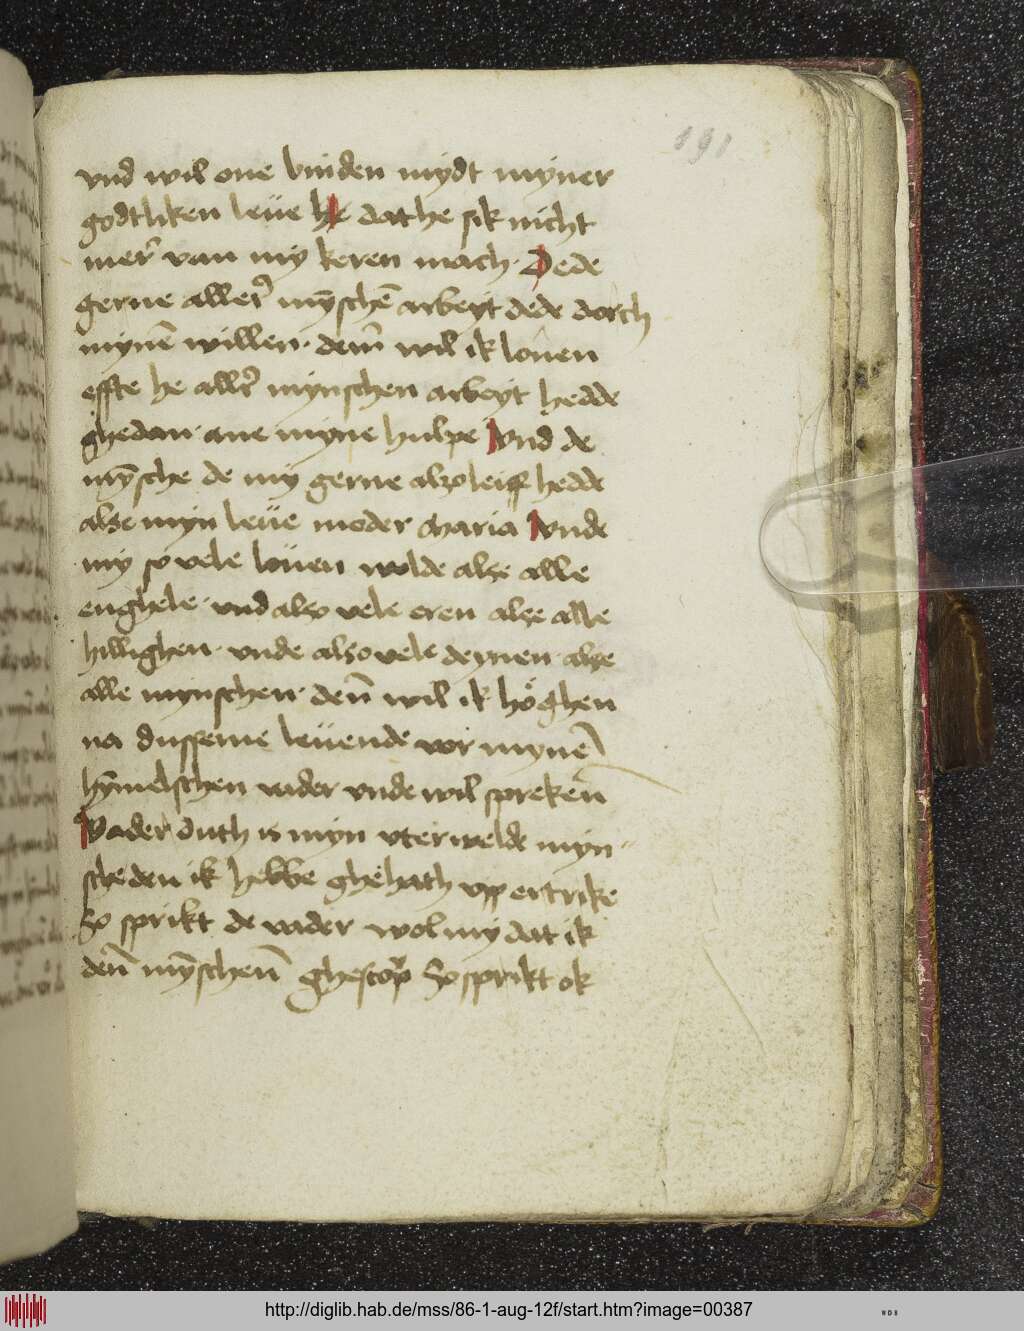 191
vnd wil one binden mydt myner
godtliken leue he dat he sik nicht
mer̄ van my keren mach. Dede
gerne aller̄ myschē arbeyt dede dorch
mynē willen. dem̄ wil ik louen
effte he aller̄ mynschen arbeyt hedde
ghedan. ane myne hulpe Vnd de
mȳsche de my gerne alzo leiff hedde
alze myn leue moder maria Vnde
my so vele louen wolde alze alle
enghele. vnd alzo vele eren alze alle
hillighen. vnde alzo vele deynen alze
alle mynschen. den̄ wil ik höghen
na dusseme leuende vor mynē
hȳmelschen vader vnde wil spreken
Vader duth is myn vterwelde myn-
sche den ik hebbe ghehath vpp ertrike
So sprikt de vader wol my dat ik
den̄ mȳschen̄ ghescop̄ So sprikt ok
http://diglib.hab.de/mss/86-1-aug-12f/start.htm?image=00387